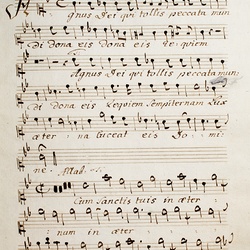 gnus Dei qui tollis peccata mun
di dona eis dona eis requiem
Agnus Dei qui tollis peccata mun
di dona eis Requiem sempiternam Lux
æter na luceat eis Do mi
ne.
Cum Sanctis tuis in æter
num in æter